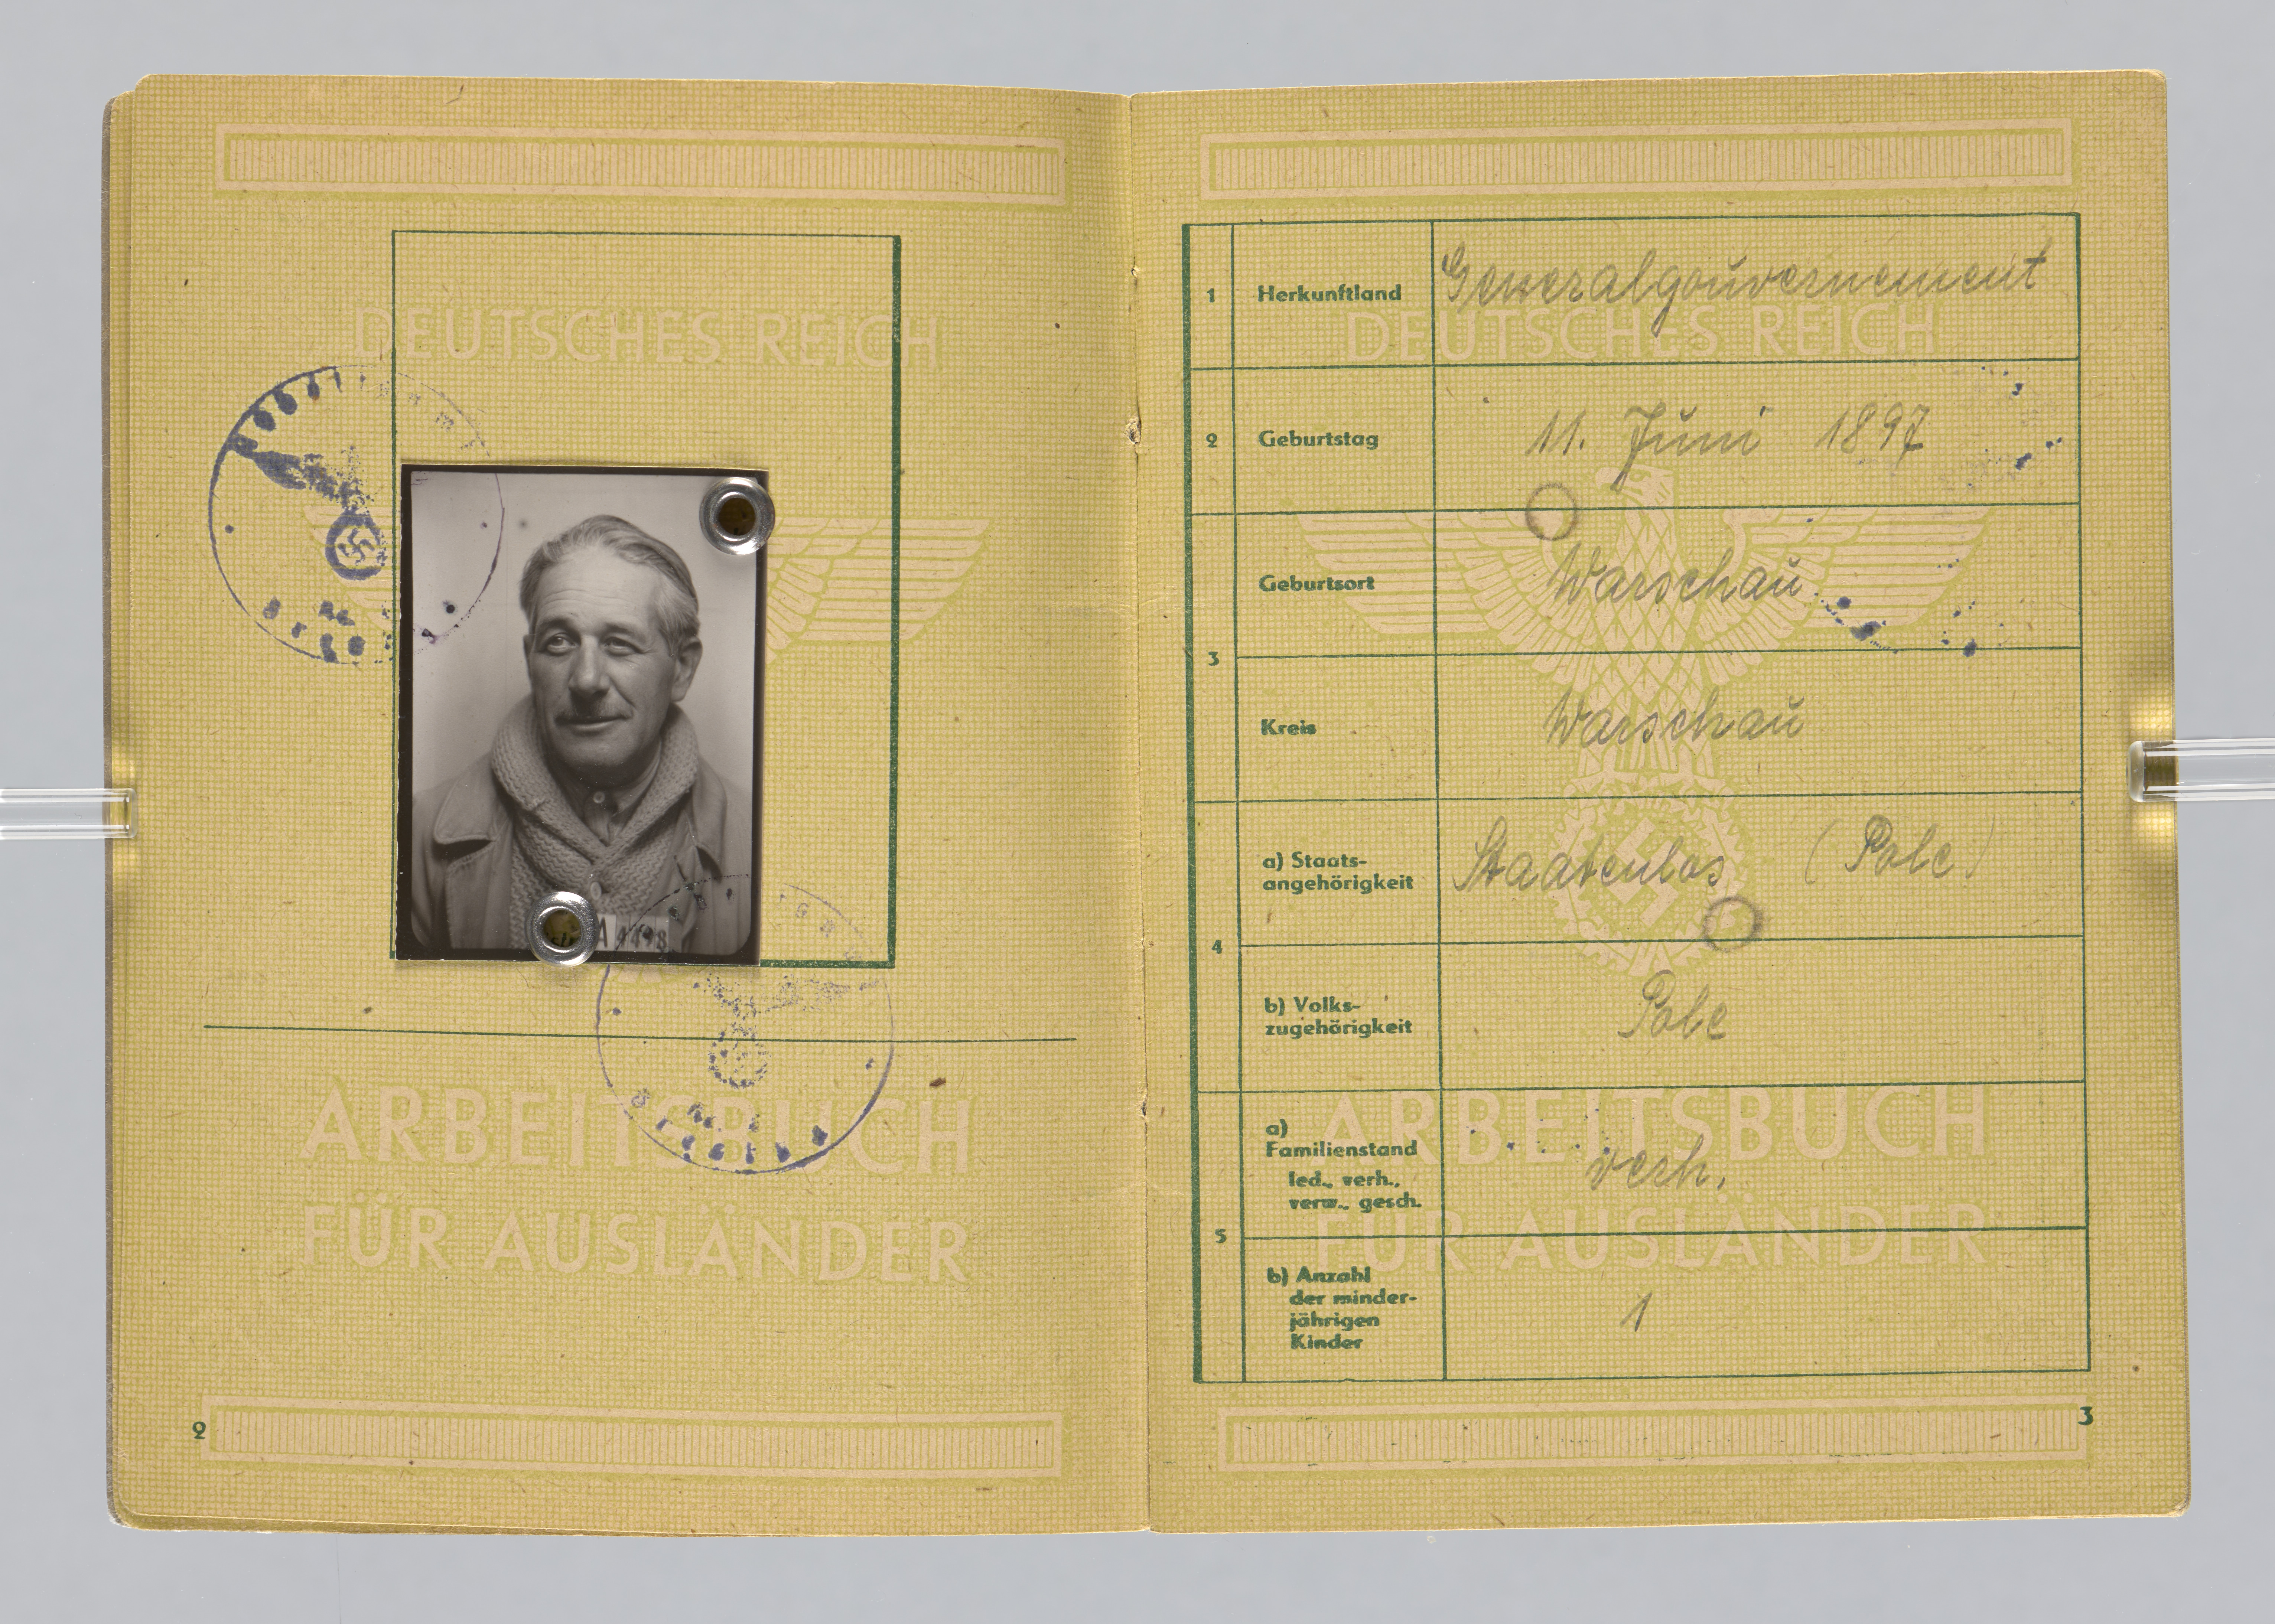 DEUTSCHES REICH
A 4498
ARBEITSBUCH
FÜR AUSLÄNDER
2
DEUTSCHES REICH
1 Herkunftland Generalgouvernement
2 Geburtstag 11. Juni 1897
3 Geburtsort Warschau
Kreis Warschau
4 a) Staats-
angehörigkeit Staatenlos (Pole)
b) Volks-
zugehörigkeit Pole
ARBEITSBUCH
FÜR AUSLÄNDER
5 a)
Familienstand
led., verh.,
verw., gesch. verh.
b) Anzahl
der minder-
jährigen
Kinder 1
3